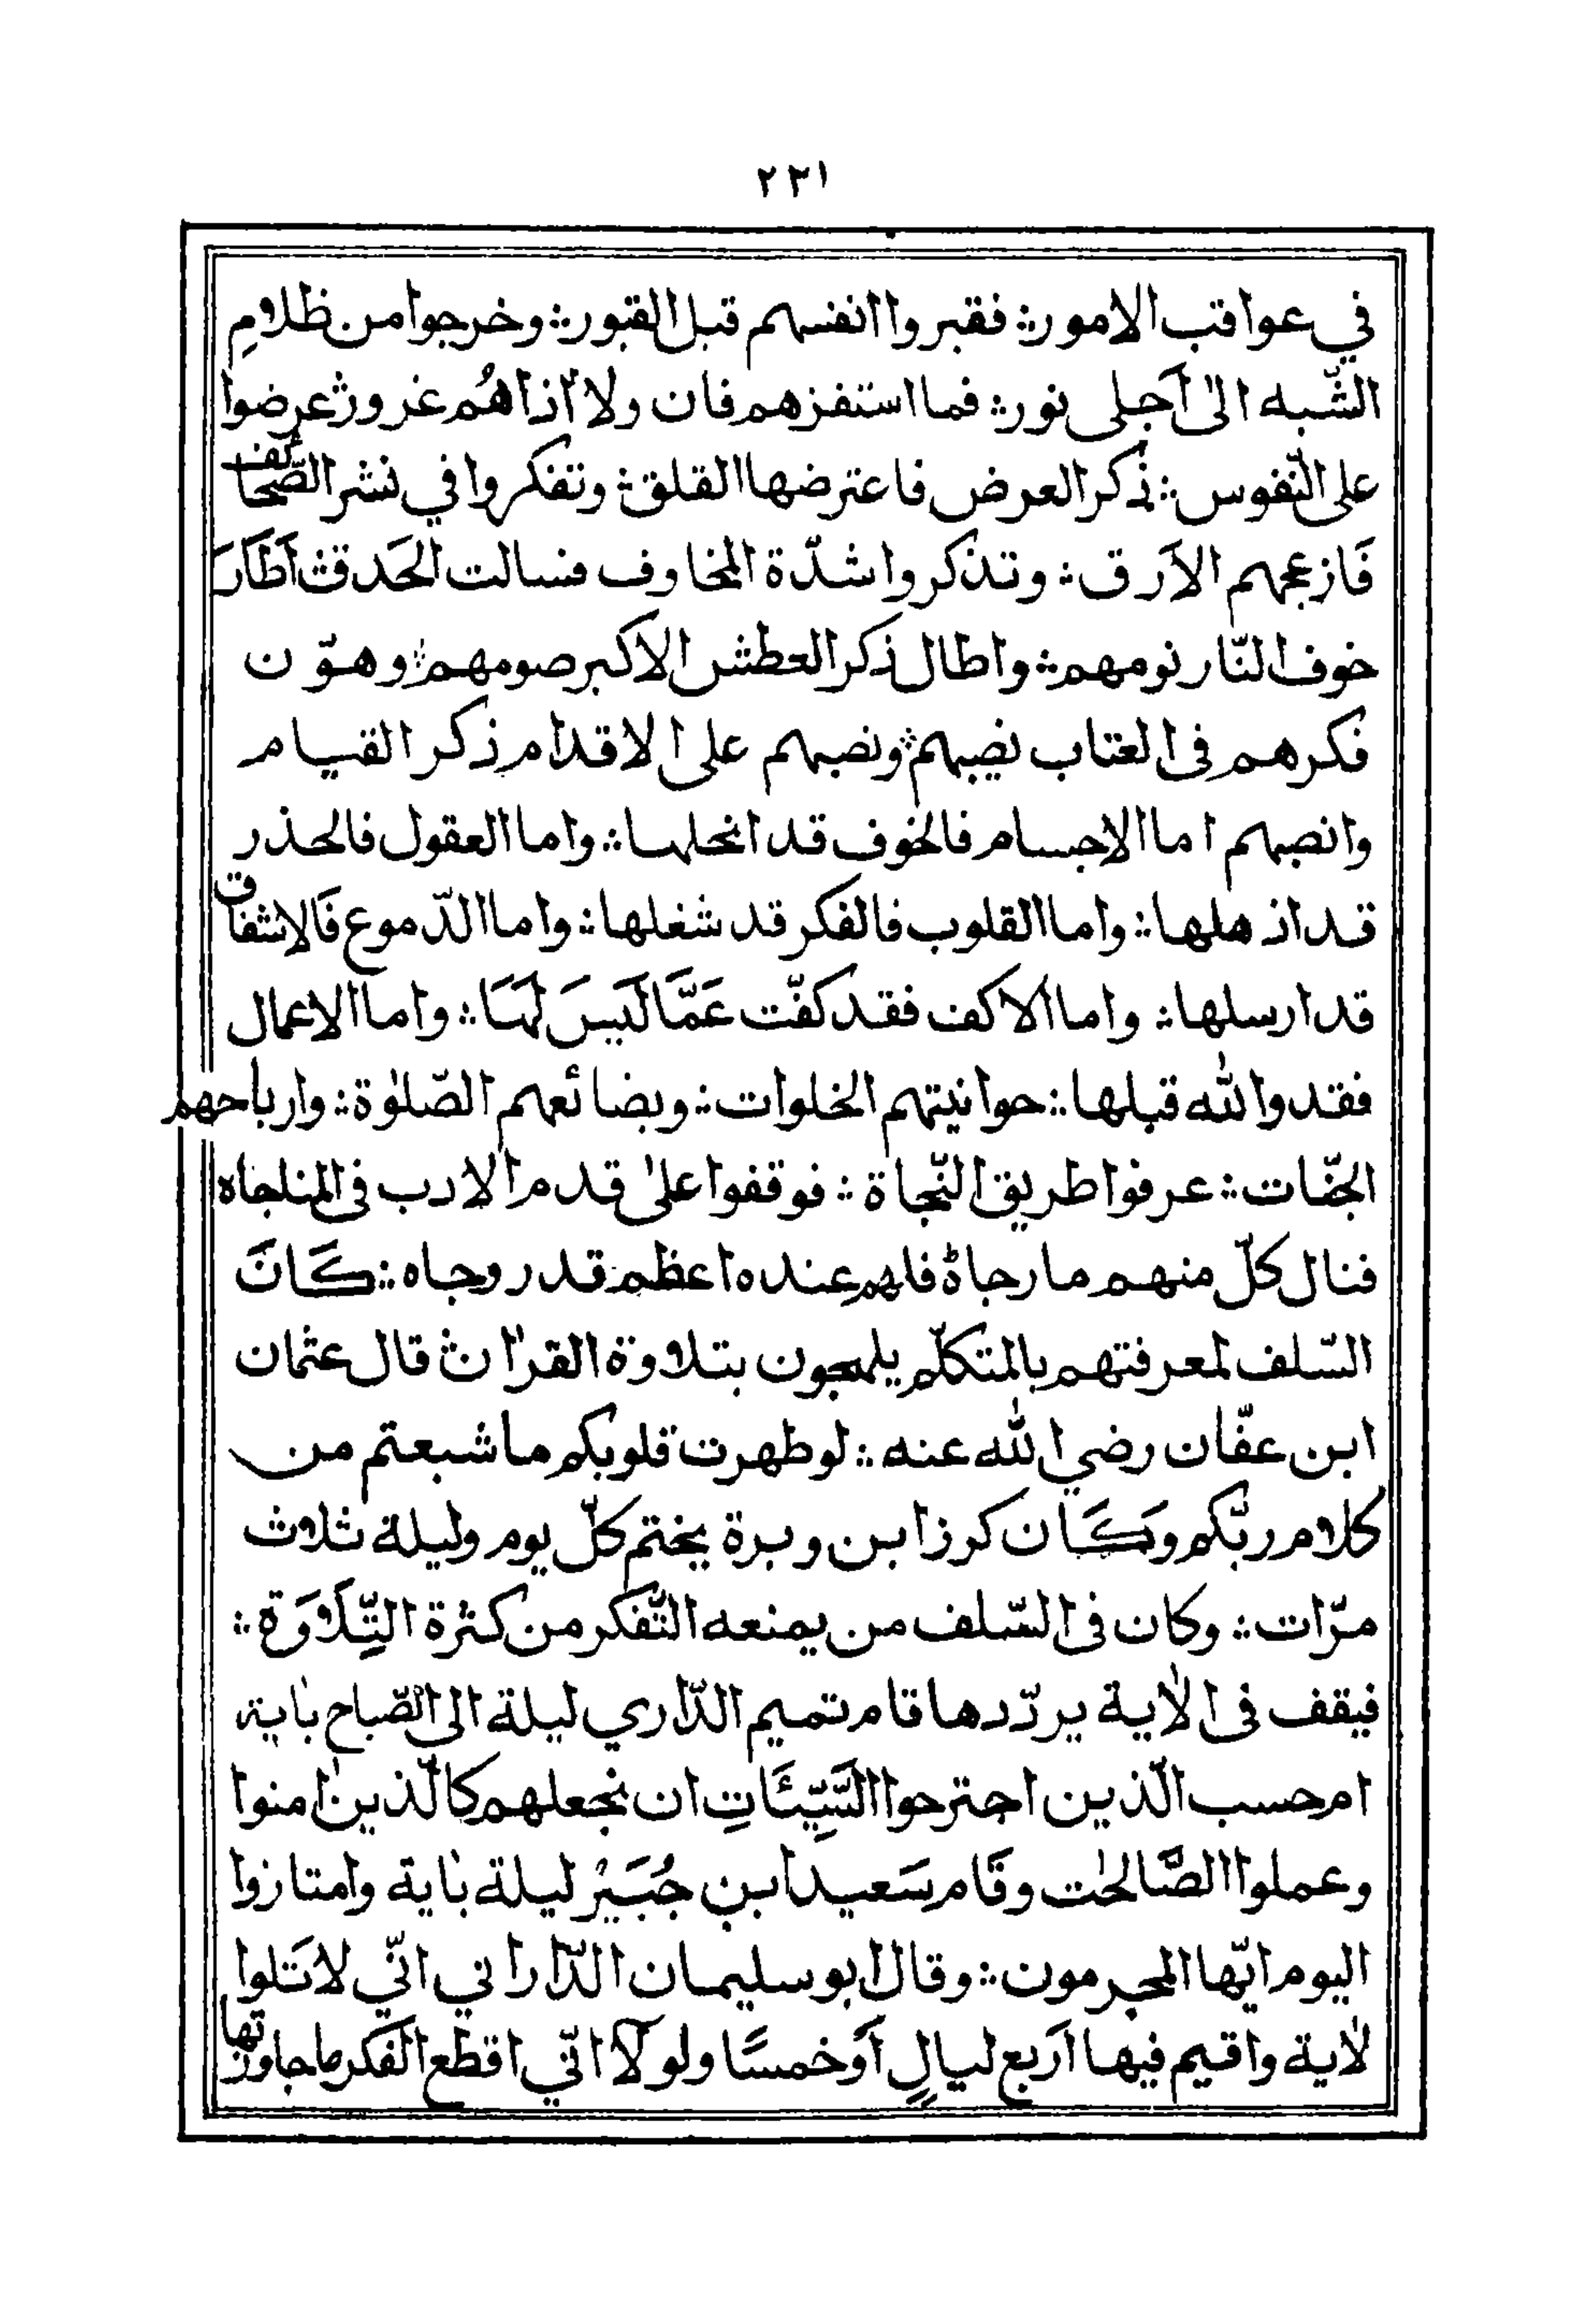 ٢٣١
في عواقب الامور ؞ فقبروا انفسهم قبل القبور ؞ وخرجوا من ظلامِ
الشّبه الىٰ اَجلى نور ؞ فما استفزهم فان ولا اذاهُم غرور ؞ عرضوا
على النّفوس ؞ ذكر العرض فاعترضها القلق ؞ وتفكروا في نشر الصّحائف
فَازعجهم الاَرق ؞ وتذكروا شدّة المخاوف فسالت الحَدق ؞ اَطَارَ
خوف النّار نومهم ؞ واطال ذكر العطش الاكبر صومهم ؞ وهوّن
فكرهم فى العتاب نصبهم ؞ ونصبهم على الاقدام ذكر القيام
وانصبهم اما الاجسام فالخوف قد انحلها ؞ واما العقول فالحذر
قد اذهلها ؞ واما القلوب فالفكر قد شغلها ؞ واما الدّموع فَالاشفاق
قد ارسلها ؞ واما الاكف فقد كفّت عَمَّا لَيسَ لَهَا ؞ واما الاعمال
فقد والله قبلها ؞ حوانيتهم الخلوات ؞ وبضائعهم الصّلوٰة ؞ وارباحهم
الجنّات ؞ عرفوا طريق النّجاة ؞ فوقفوا علىٰ قدم الادب فى المناجاه
فنال كلّ منهم ما رجاهُ فلهم عنده اعظم قدر وجاه ؞ كَانَ
السّلف لمعرفتهم بالمتكلّم يلهجون بتلاوة القراٰن ؞ قال عثمان
ابن عفّان رضي الله عنه ؞ لو طهرت قلوبكم ما شبعتم من
كلام ربّكم وَكَان كرز ابن وبرة يختم كلّ يوم وليلة ثلاث
مرّات ؞ وكان فى السّلف من يمنعه التّفكر من كثرة التِّلَاوَة ؞
فيقف فى الاٰية يردّدها قام تميم الدّاري ليلة الى الصّباح باٰية
ام حسب الّذين اجترحوا السَّيِّئَاتِ ان نجعلهم كالّذين اٰمنوا
وعملوا الصَّالحٰت وقَام سَعيد ابن جُبَيْر ليلة باٰية وامتازوا
اليوم ايّها المجرمون ؞ وقال ابو سليمان الدّاراني انّي لاَتلوا
لاٰية واقيم فيها اَربع ليالٍ اَو خمسًا ولولَا انّي اقطع الفكر ما جاوزتها